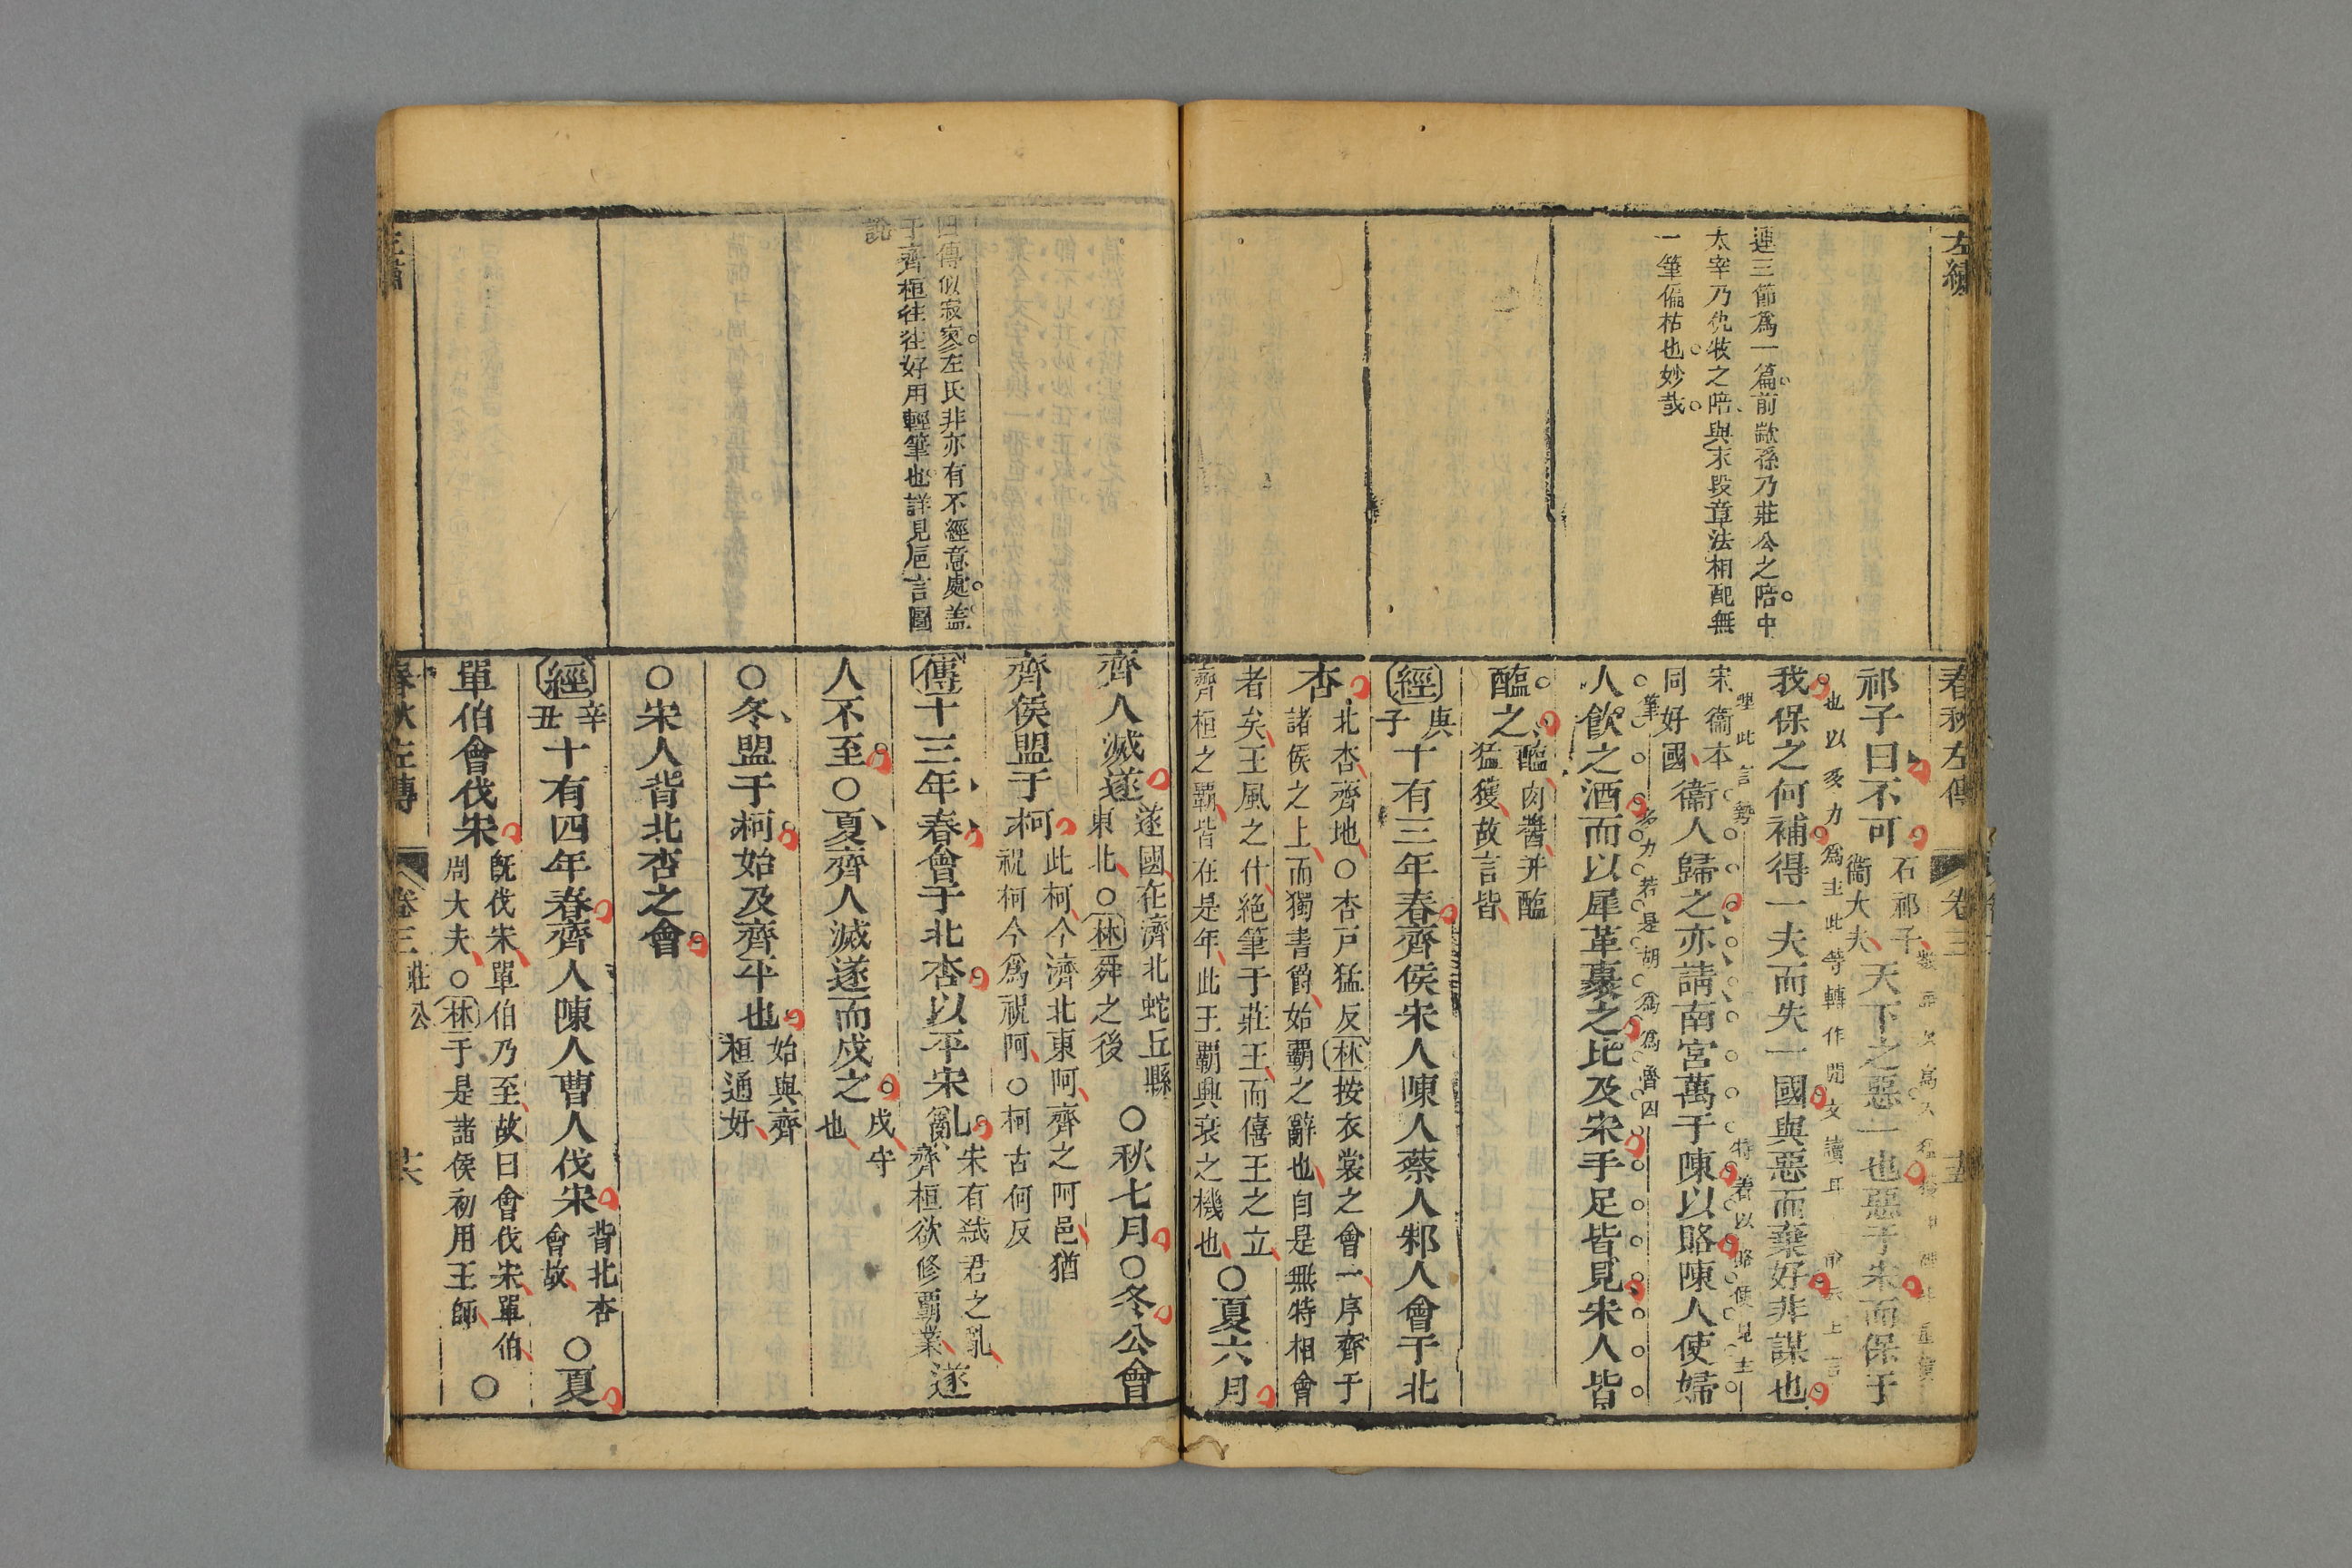 左繡
連三節爲一篇前歂孫乃莊公之陪中
太宰乃仇牧之陪與末段章法相配無
一筆偏枯也妙哉
春秋左傳 卷三
祁子曰不可 石祁子 衞大夫 天下之惡一也惡于宋而保于
也以 力爲主此等轉作開文讀耳
我保之何補得一夫而失一國與惡而棄好非謀也
宋衞本
同好國 衞人歸之亦請南宮萬于陳以賂陳人使婦
多力若是胡爲爲魯囚
人飲之酒而以犀革裹之比及宋手足皆見宋人皆
醢之 醢肉醬并醢
猛獲故言皆
經 庚子 十有三年春齊侯宋人陳人蔡人邾人會于北
杏 北杏齊地○杏戸猛反林按衣裳之會一序齊于
諸侯之上而獨書爵始覇之辭也自是無特相會
者矣王風之什絶筆于莊王而僖王之立
齊桓之覇皆在是年此王覇興衰之機也 ○夏六月
齊人滅遂 遂國在濟北蛇丘縣
東北○林舜之後 ○秋七月○冬公會
齊侯盟于柯 此柯今濟北東阿齊之阿邑猶
祝柯今爲祝阿○柯古何反
四傳似寂寥左氏非亦有不經意處盖
于齊桓往往好用輕筆也詳見巵言圖
說
傳十三年春會于北杏以平宋亂 宋有弒君之亂
齊桓欲修覇業 遂
人不至○夏齊人滅遂而戍之 戍守
也
○冬盟于柯始及齊平也 始與齊
桓通好
○宋人背北杏之會
經 辛丑 十有四年春齊人陳人曹人伐宋 背北杏
會故 ○夏
單伯會伐宋 旣伐宋單伯乃至故曰會伐宋單伯
周大夫○林于是諸侯初用王師 ○
春秋左傳 卷三 莊公